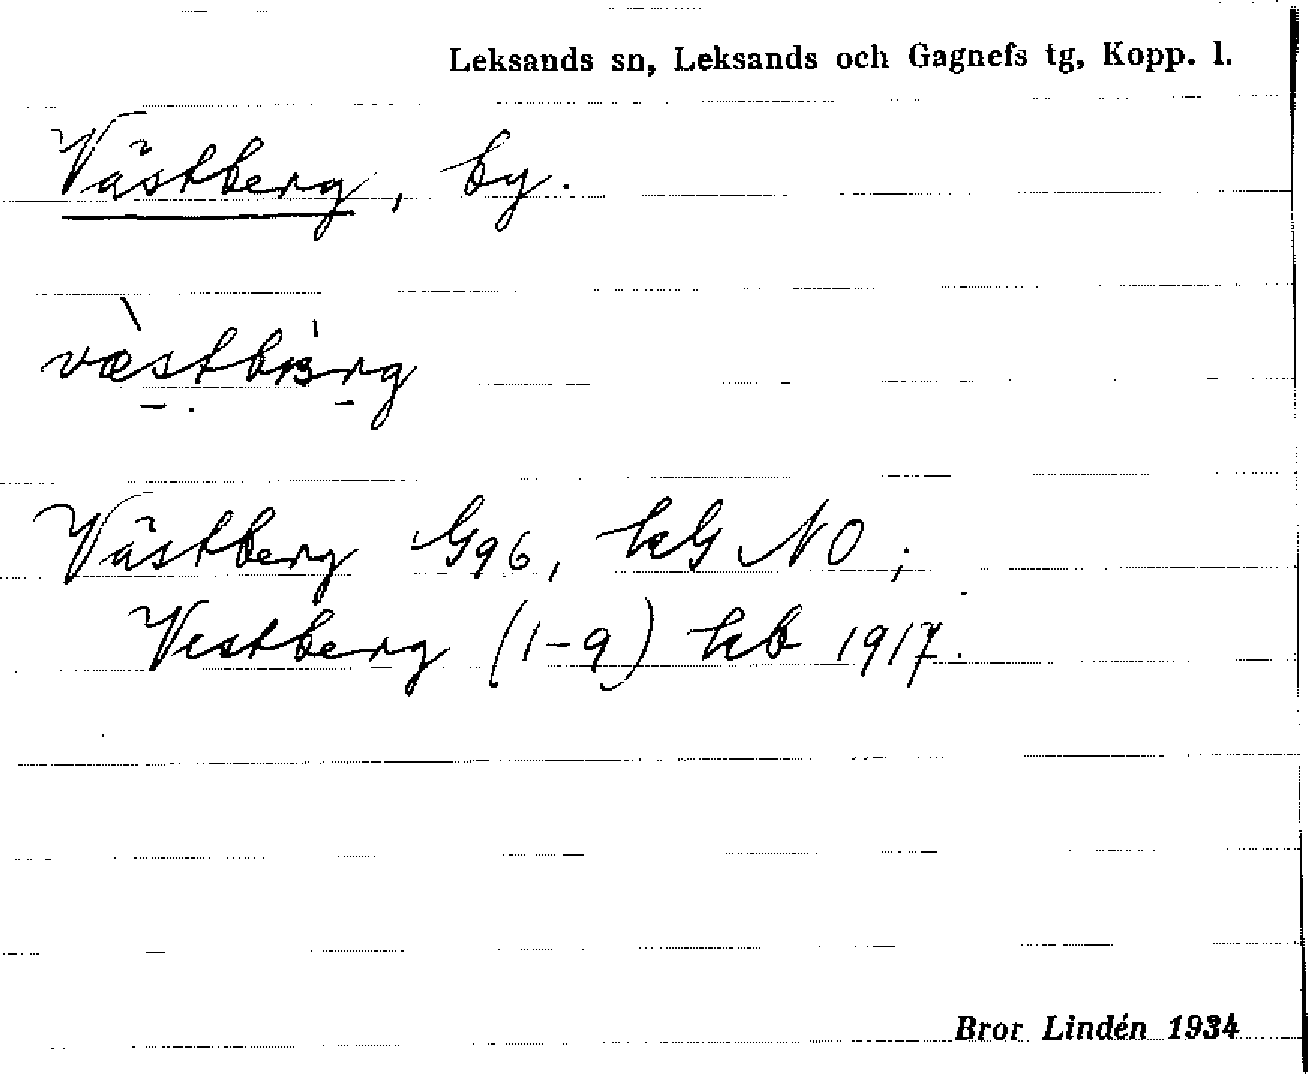 Leksands sn, Leksands och Gagnefs tg, Kopp. l.
Västberg, by.
Västberg G96, kG NO;
Vestberg (1-9) kb 1917.
Bror Lindén 1934